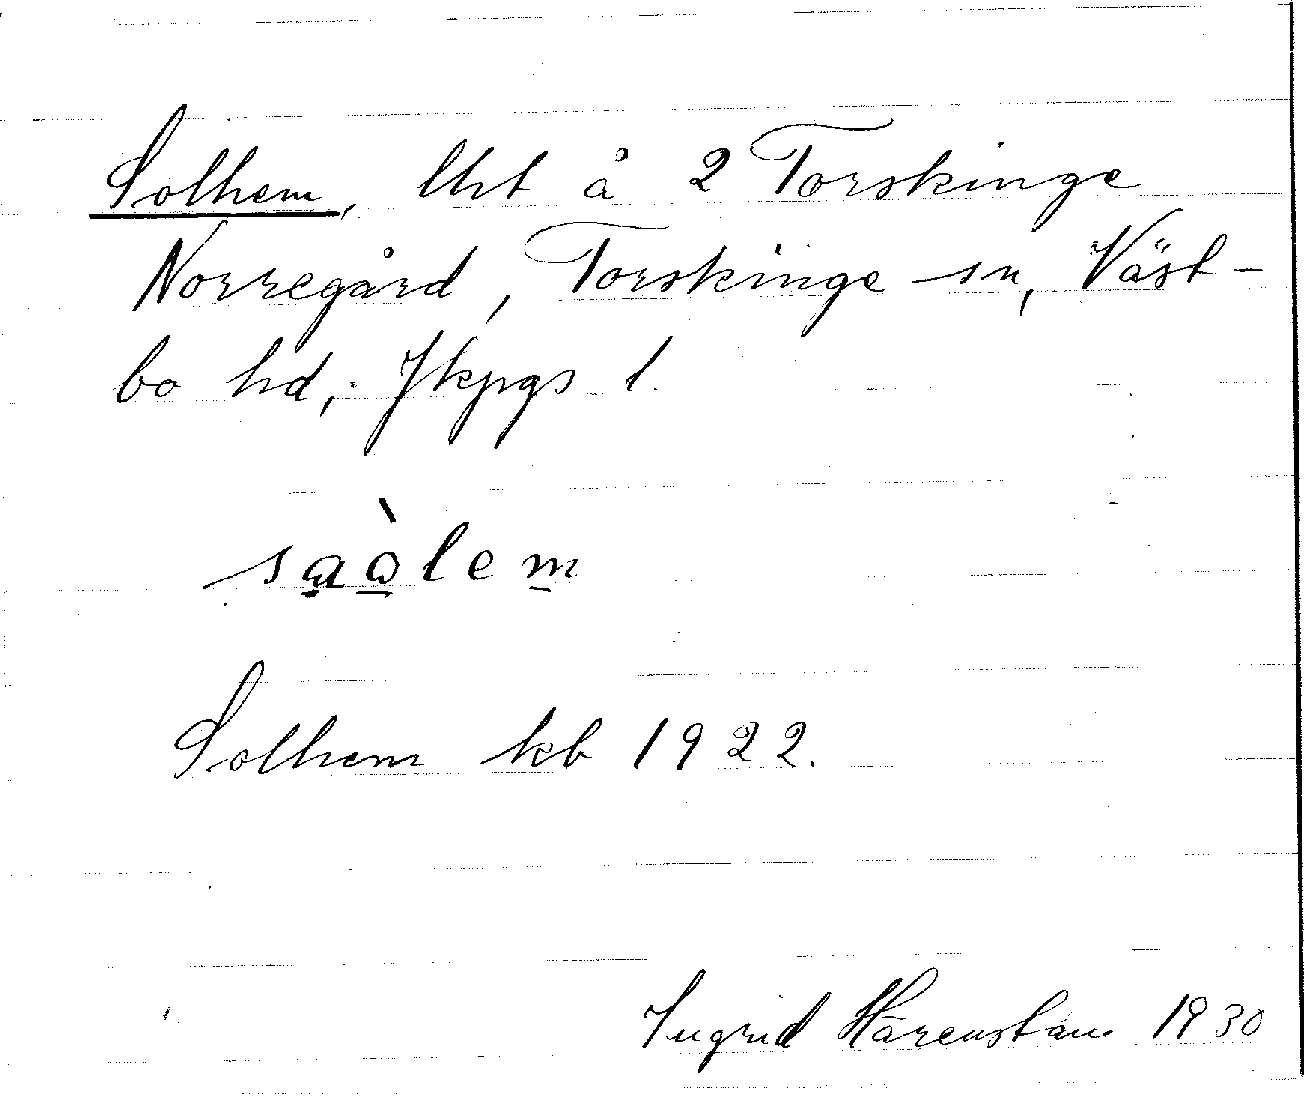 Solhem, lht å 2 Torskinge
Norregård, Torskinge sn, Väst-
bo hd, Jkpgs l.
sa̱òḻem̱
Solhem kb 1922.
Ingrid Härenstam 1930